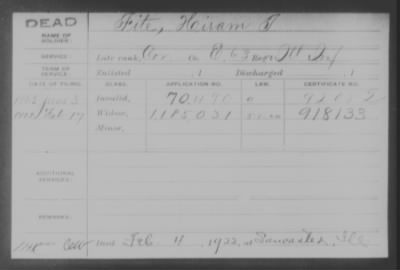 DEAD
NAME OF SOLDIER:
Fite, Hoiram P
SERVICE:
Late rank, Co. E, 63 Reg't Ill Inf
TERM OF SERVICE:
Enlisted , 1 Discharged , 1
DATE OF FILING. CLASS. APPLICATION NO. LAW. CERTIFICATE NO.
Invalid,
Feb 17 Widow, 1185031 918133
Minor,
ADDITIONAL SERVICES:
REMARKS:
Died Feb 4 1922, at Lancaster, Ill